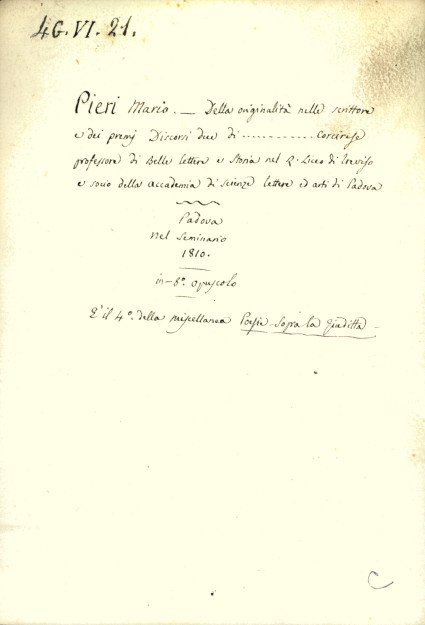 4G.VI.21.
Pieri Mario. — Della originalità nelle scrittore
e dei premj Discorsi due di ............ Corcirese
professore di Belle lettere e Storia nel R. Liceo di Treviso
e socio della accademia di scienze lettere ed arti di Padova
Padova
Nel Seminario
1810.
in-8º. opuscolo
E' il 4º. della miscellanea Poesie sopra la Giuditta
C